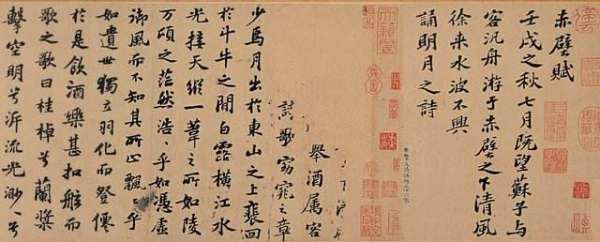 赤壁賦
壬戌之秋七月既望蘇子與
客汎舟游于赤壁之下清風
徐來水波不興
誦明月之詩
舉酒屬客
歌窈窕之章
少焉月出於東山之上裵回
於斗牛之間白露橫江水
光接天縱一葦之所如陵
万頃之茫然浩〻乎如憑虛
御風而不知其所止飄〻乎
如遺世獨立羽化而登僊
於是飲酒樂甚扣舷而
歌之歌曰桂棹兮蘭槳
擊空明兮泝流光渺〻兮